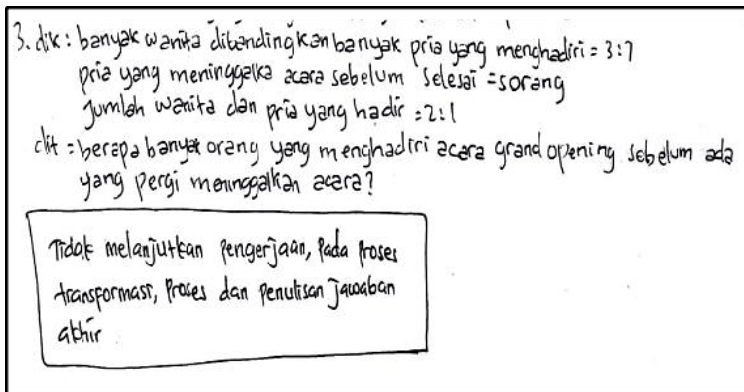 3. dik : banyak wanita dibandingkan banyak pria yang menghadiri = 3:7
pria yang meninggalka acara sebelum selesai = 5orang
Jumlah wanita dan pria yang hadir = 2:1
dit : berapa banyak orang yang menghadiri acara grand opening sebelum ada
yang pergi meninggalkan acara?
Tidak melanjutkan pengerjaan, pada proses
transformasi, proses dan penulisan jawaban
akhir